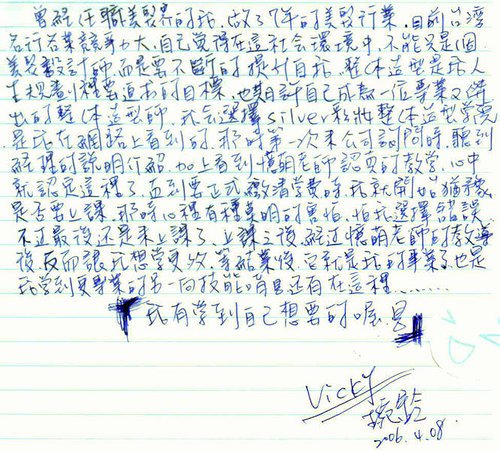 曾經任職美髮界的我,做了7年的美髮行業,目前台灣
各行各業競爭力大,自己覺得在這社會環境中,不能只是個
美髮設計師,而是要不斷的提升自我,整体造型是我人
生規畫裡要追求的目標,也期許自己成為一位專業又傑
出的整体造型師,我會選擇silver彩妝整体造型學院
是我在網路上看到的,那時第一次來公司詢問時,聽到
經理的說明介紹,加上看到憶萌老師認真的教學,心中
就認定這裡了,直到要正式繳清學費時,我就開始猶豫
是否要上課,那時心裡有種莫明的畏怕,怕我選擇錯誤,
不過最後還是來上課了,上課之後,經過憶萌老師的教導
後,反而讓我想學更好,等結業後,它就是我的事業了,也是
我學到更專業的另一向技能,唷!還有在這裡........
我有學到自己想要的喔!
Vicky
2006.4.08.